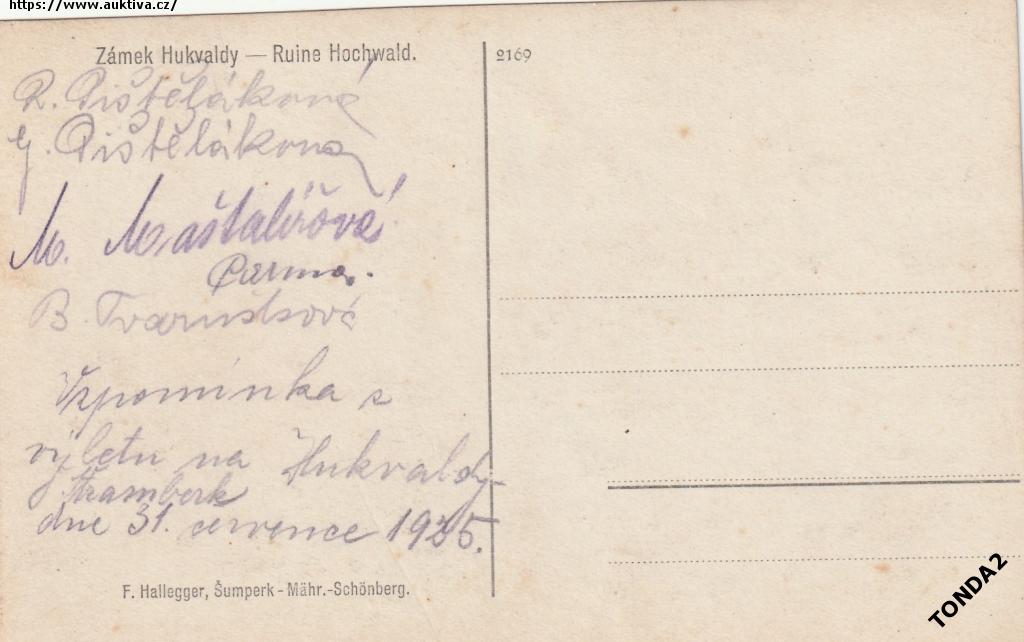 https://www.auktiva.cz/
Zámek Hukvaldy — Ruine Hochwald.
2169
R. Pištěláková
Pištěláková
M. Maštalířová
B.
Vzpomínka z
výletu na Hukvaldy-
Štramberk
dne 31. července 1925.
F. Hallegger, Šumperk - Mähr.-Schönberg.
TONDA2